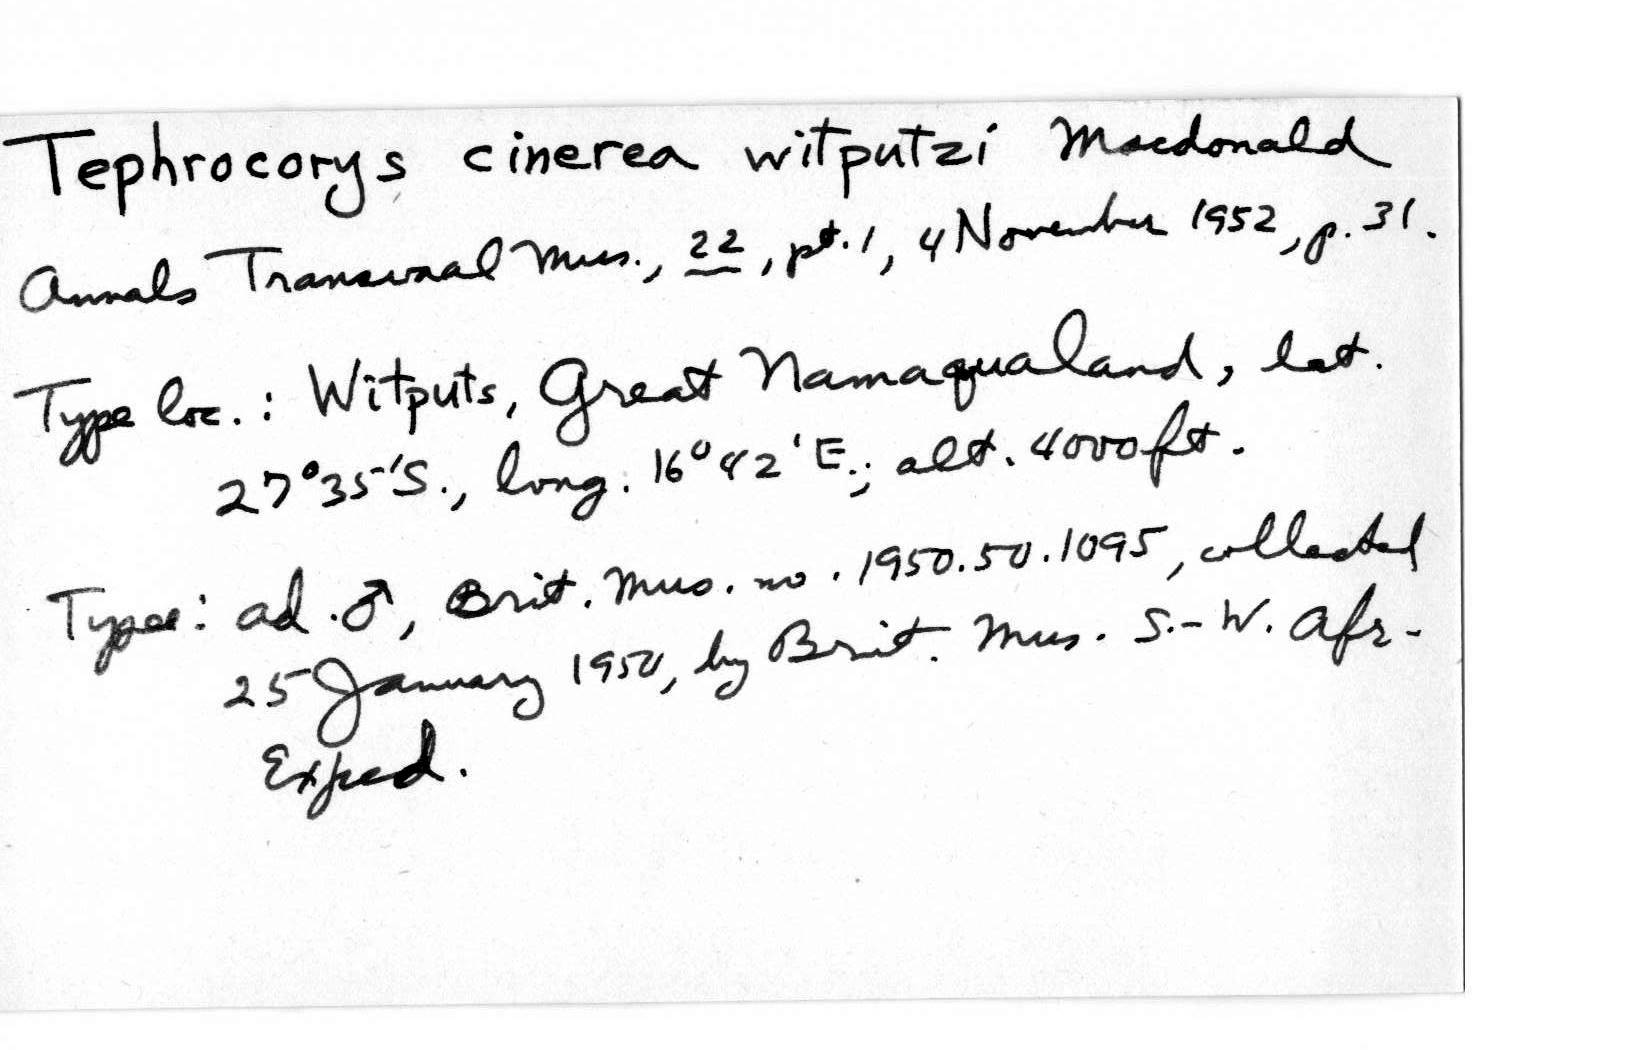 Tephrocorys cinerea witputzi Macdonald
Annals Transvaal Mus., 22, pt. 1, 4 November 1952, p. 31.
Type loc.: Witputs, Great Namaqualand, lat.
27°35'S., long. 16°42'E.; alt. 4000 ft.
Type: ad. ♂, Brit. Mus. no. 1950.50.1095, collected
25 January 1950, by Brit. Mus. S.-W. Afr.
Exped.